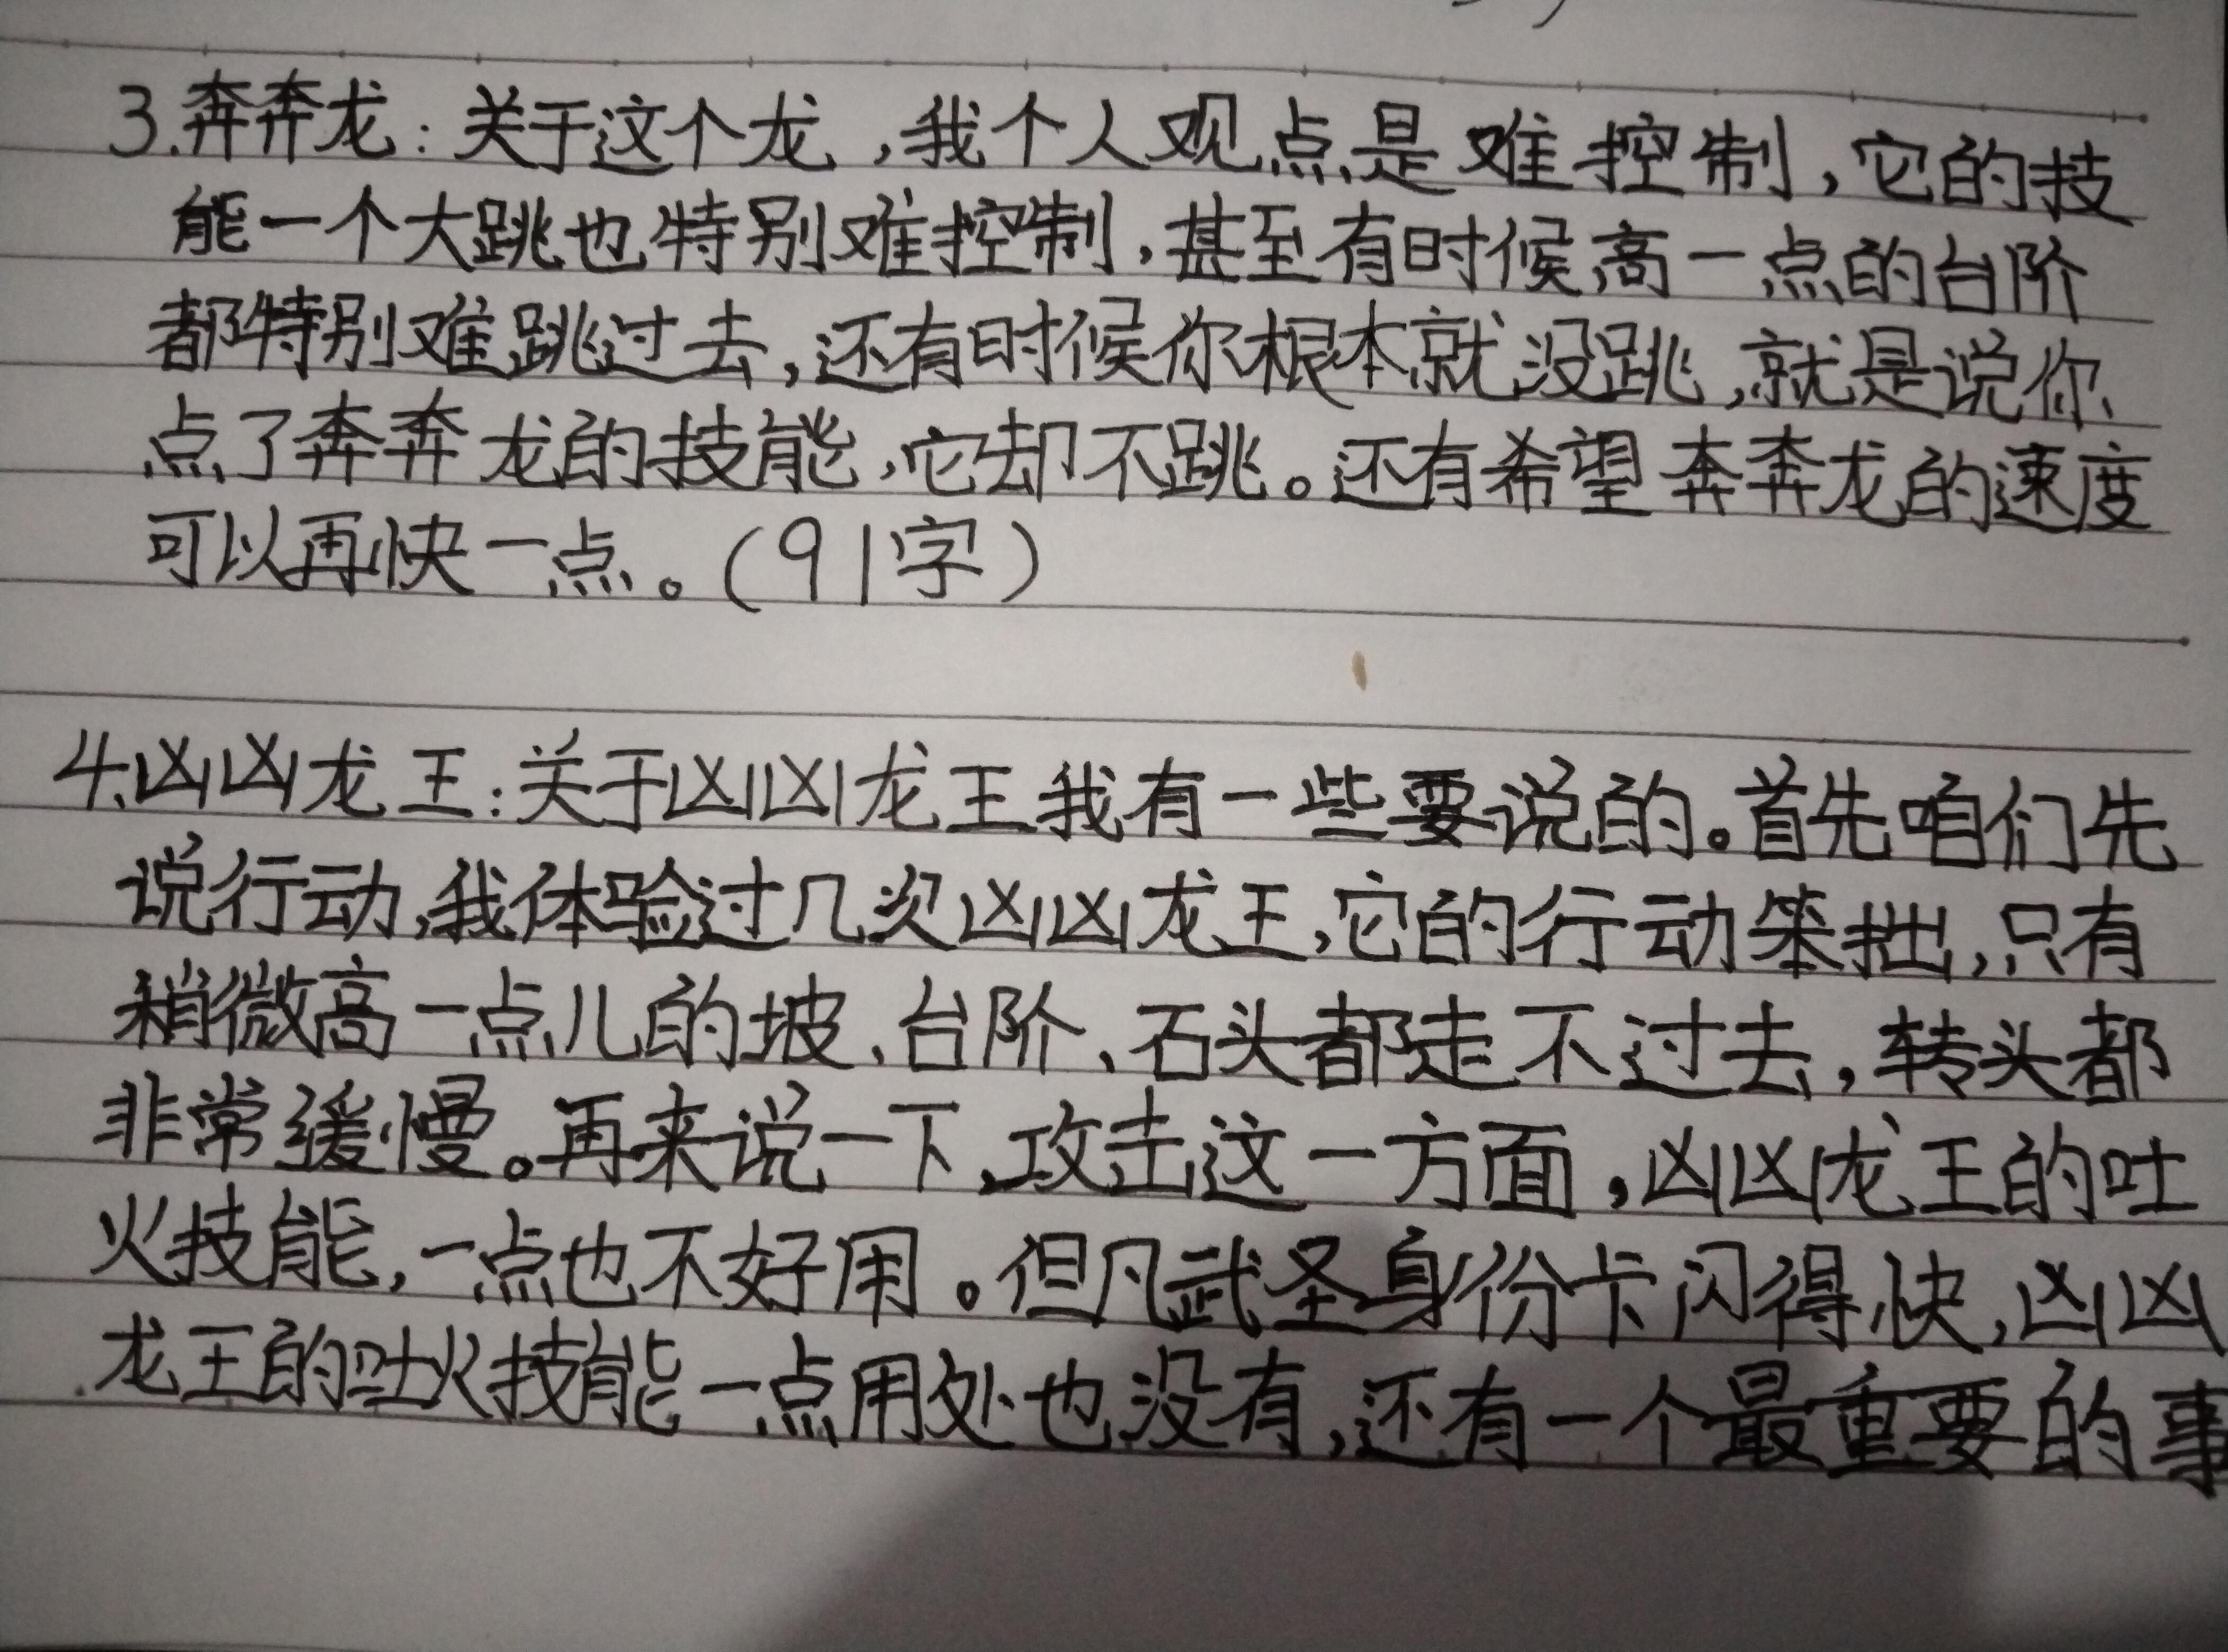 3.奔奔龙：关于这个龙，我个人观点是难控制，它的技
能一个大跳也特别难控制，甚至有时候高一点的台阶
都特别难跳过去，还有时候你根本就没跳，就是说你
点了奔奔龙的技能，它却不跳。还有希望奔奔龙的速度
可以再快一点。（91字）
4.凶凶龙王：关于凶凶龙王我有一些要说的。首先咱们先
说行动，我体验过几次凶凶龙王，它的行动笨拙，只有
稍微高一点儿的坡、台阶、石头都走不过去，转头都
非常缓慢。再来说一下，攻击这一方面，凶凶龙王的吐
火技能，一点也不好用。但凡武圣身份卡闪得快，凶凶
龙王的吐火技能一点用处也没有，还有一个最重要的事